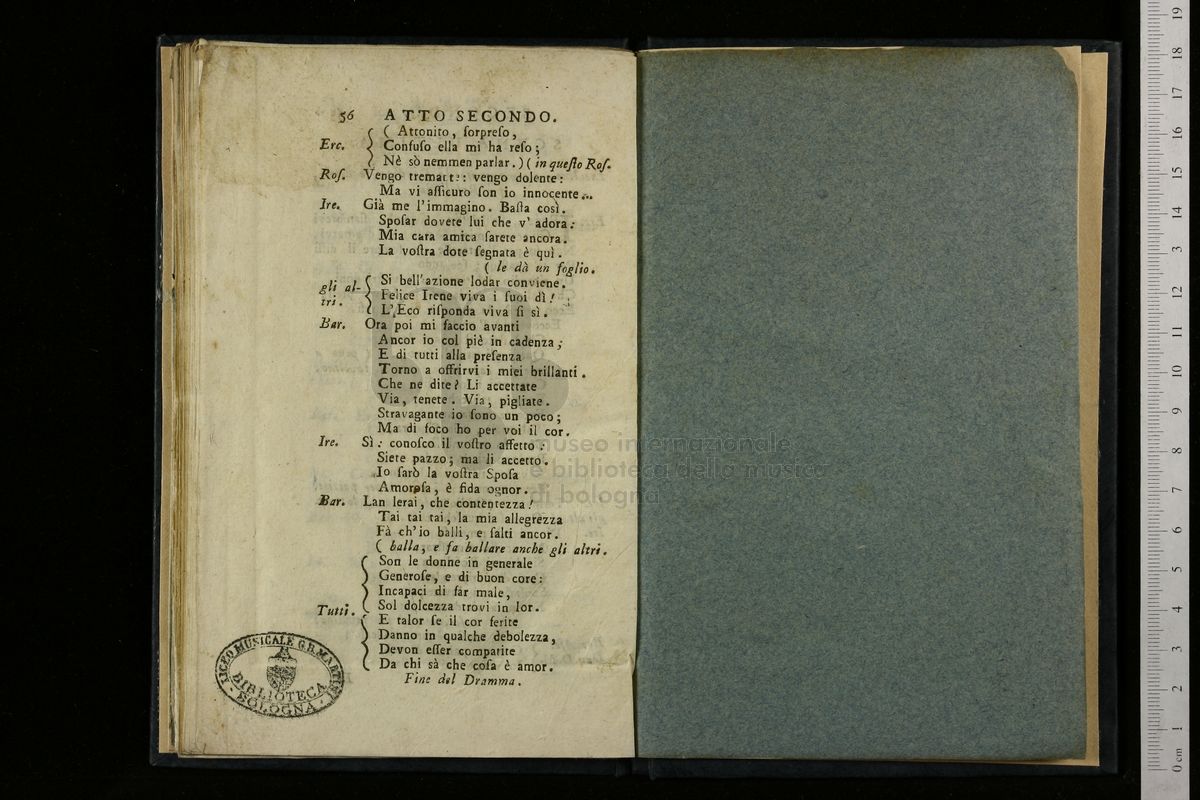 56 ATTO SECONDO.
( Attonito, ſorpreſo,
Erc. Confuſo ella mi ha reſo;
Nè sò nemmen parlar. ) ( in queſto Roſ.
Roſ. Vengo vengo dolente:
Ma vi aſſicuro ſon io innocente...
Ire. Già me l'immagino. Baſta così.
Spoſar dovete lui che v' adora:
Mia cara amica ſarete ancora.
La voſtra dote ſegnata è quì.
( le dà un foglio.
gli al- Si bell'azione lodar conviene.
tri. Felice Irene viva i ſuoi dì!
L'Eco riſponda viva ſi sì.
Bar. Ora poi mi faccio avanti
Ancor io col piè in cadenza;
E di tutti alla preſenza
Torno a offrirvi i miei brillanti.
Che ne dite? Li accettate
Via, tenete. Via, pigliate.
Stravagante io ſono un poco;
Ma di foco ho per voi il cor.
Ire. Sì: conoſco il voſtro affetto:
Siete pazzo; ma li accetto.
Io ſarò la voſtra Spoſa
Amoroſa, è fida ognor.
Bar. Lan lerai, che contentezza!
Tai tai tai, la mia allegrezza
Fà ch'io balli, e ſalti ancor.
( balla, e fa ballare anche gli altri.
Son le donne in generale
Generoſe, e di buon core:
Incapaci di far male,
Tutti. Sol dolcezza trovi in lor.
E talor ſe il cor ferite
Danno in qualche debolezza,
Devon eſſer compatite
Da chi sà che coſa è amor.
Fine del Dramma.
LICEO MUSICALE G.B. MARTINI
BIBLIOTECA
BOLOGNA
museo internazionale
e biblioteca della musica
di bologna
0 cm 1 2 3 4 5 6 7 8 9 10 11 12 13 14 15 16 17 18 19